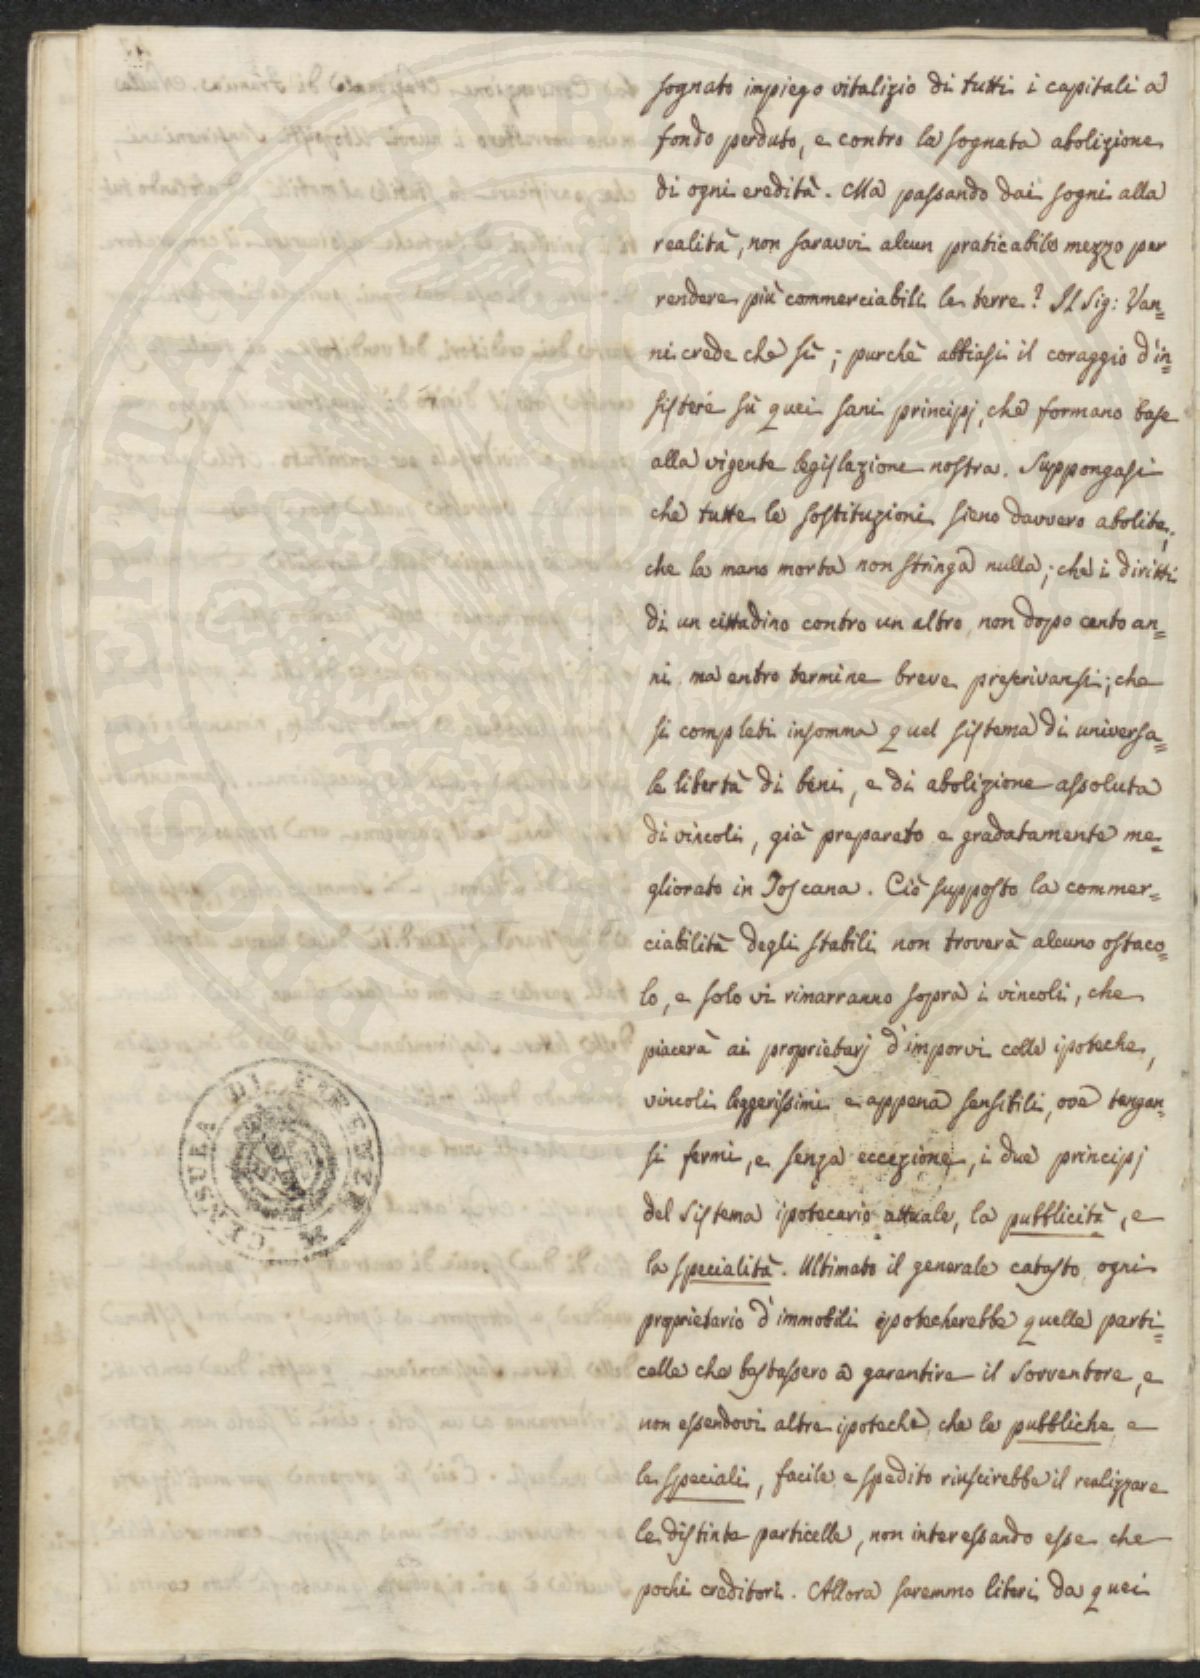 sognato impiego vitalizio di tutti i capitali a
fondo perduto, e contro la sognata abolizione
di ogni eredità. Ma passando dai sogni alla
realità, non saravvi alcun praticabile mezzo per
rendere più commerciabili le terre? Il Sig: Van=
ni crede che sù; purchè abbiasi il coraggio d'in=
sistere sù quei sani principj, che formano base
alla vigente legislazione nostra. Suppongasi
che tutte le sostituzioni sieno davvero abolite;
che la mano morta non stringa nulla; che i diritti
di un cittadino contro un altro non dopo cento an=
ni ma entro termine breve prescrivansi; che
si completi insomma quel sistema di universa=
le libertà di beni, e di abolizione assoluta
di vincoli, già preparato e gradatamente me=
gliorato in Toscana. Ciò supposto la commer=
ciabilità degli stabili non troverà alcuno ostaco=
lo, e solo vi rimarranno sopra i vincoli, che
piacerà ai proprietarj d'imporvi colle ipoteche,
vincoli leggerissimi e appena sensibili, ove tengan=
si fermi, e senza eccezione, i due principj
del sistema ipotecario attuale, la pubblicità, e
la specialità. Ultimato il generale catasto ogni
proprietario d'immobili ipotecherebbe quelle parti=
celle che bastassero a garantire il sovventore, e
non essendovi altre ipoteche che le pubbliche e
le speciali, facile e spedito riuscirebbe il realizzare
le distinte particelle, non interessando esse che
pochi creditori. Allora saremmo liberi da quei
CENSURA DI FIRENZE